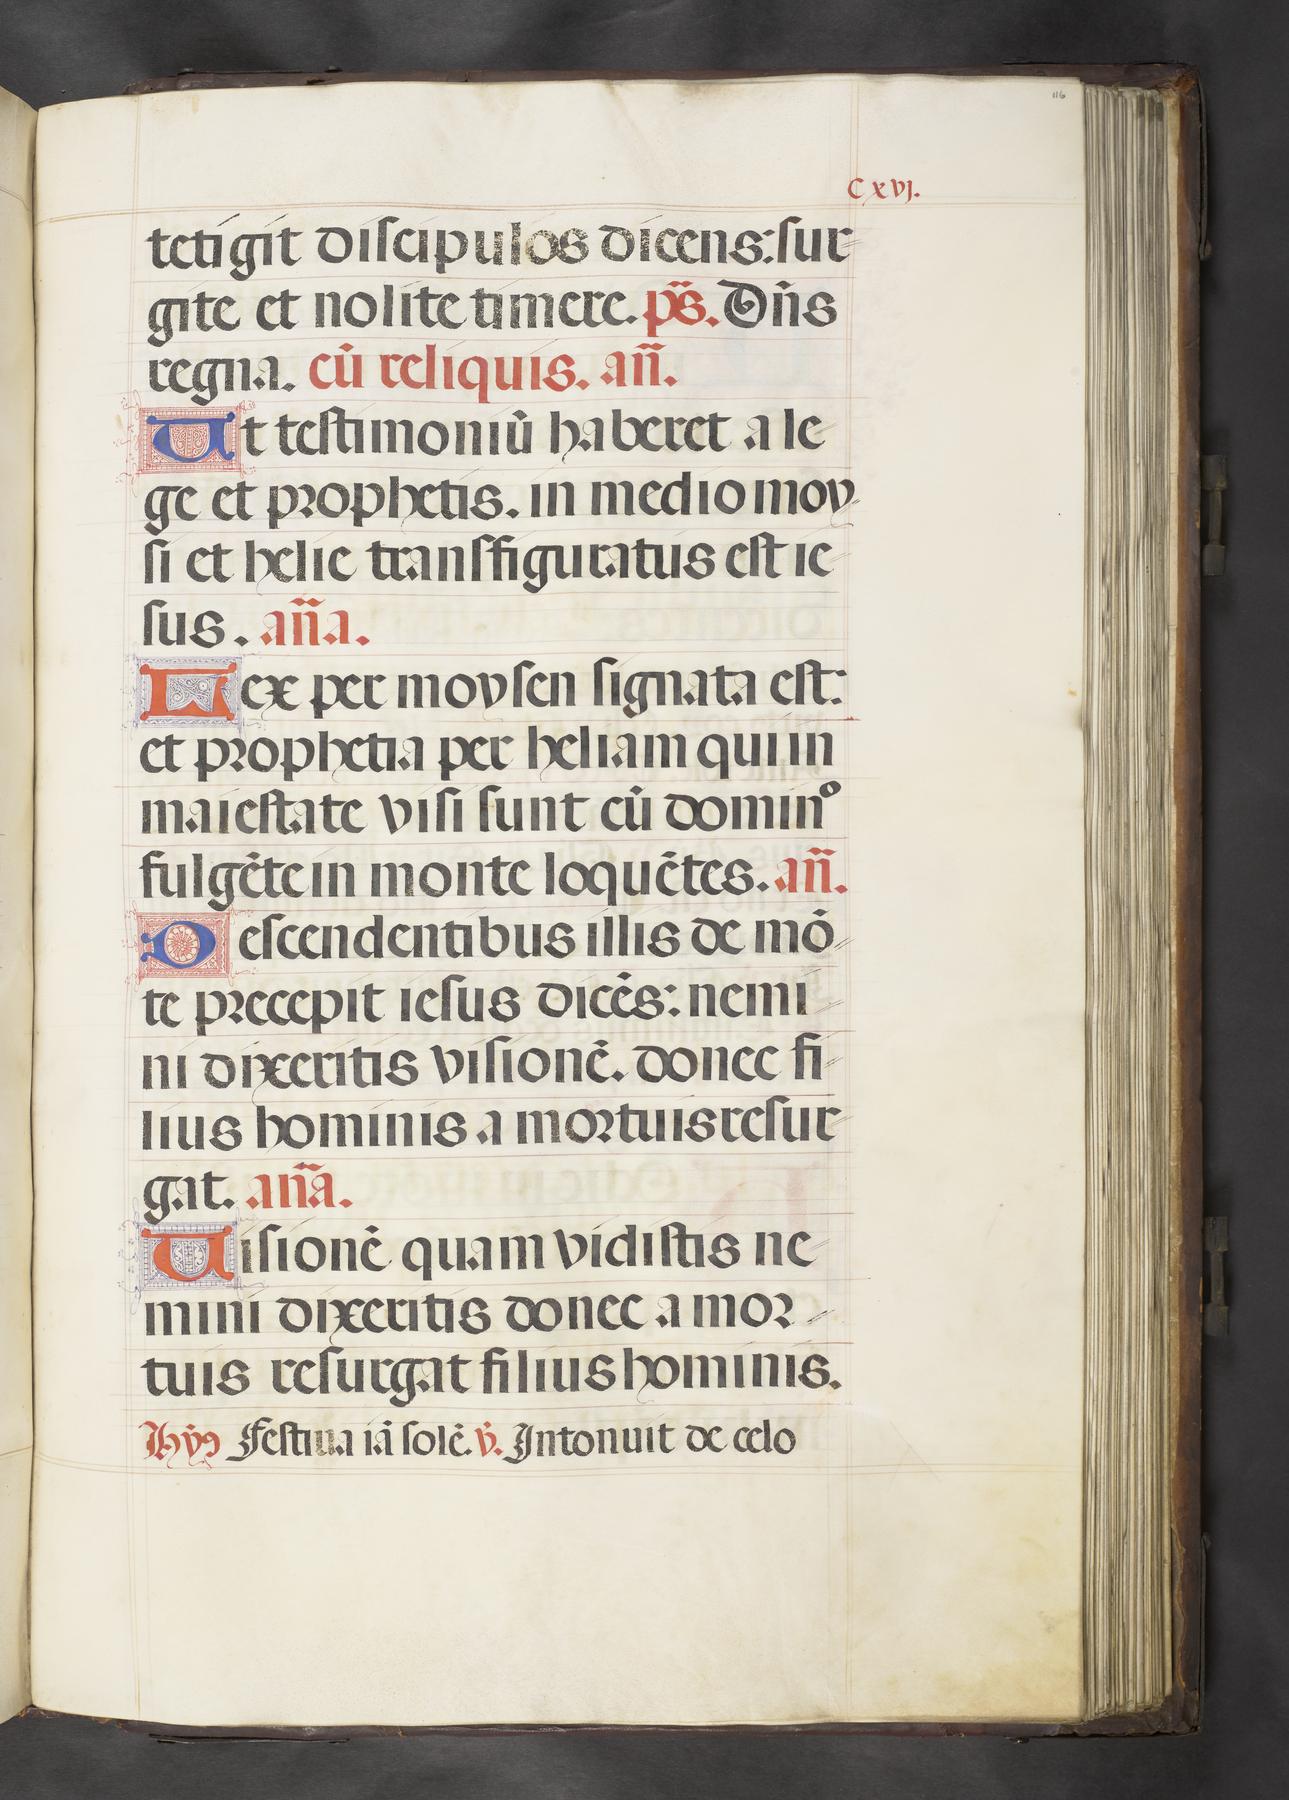 116
Cxvj.
tetigit discipulos dicens: sur
gite et nolite timere. ps̄. Dn̄s
regna. cū reliquis. an̄.
Ut testimoniū haberet a le
ge et prophetis. in medio moy
si et helie transfiguratus est ie
sus. an̄a.
Lex per moysen signata est:
et prophetia per heliam qui in
maiestate visi sunt cū dominº
fulgēte in monte loquētes. an̄.
Descendentibus illis de mō
te precepit iesus dicēs: nemi
ni dixeritis visionē. donec fi
lius hominis a mortuis resur
gat. an̄a.
Uisionē quam vidistis ne
mini dixeritis donec a mor
tuis resurgat filius hominis.
Hỹ9 Festiua iā solē. v̄. Intonuit de celo